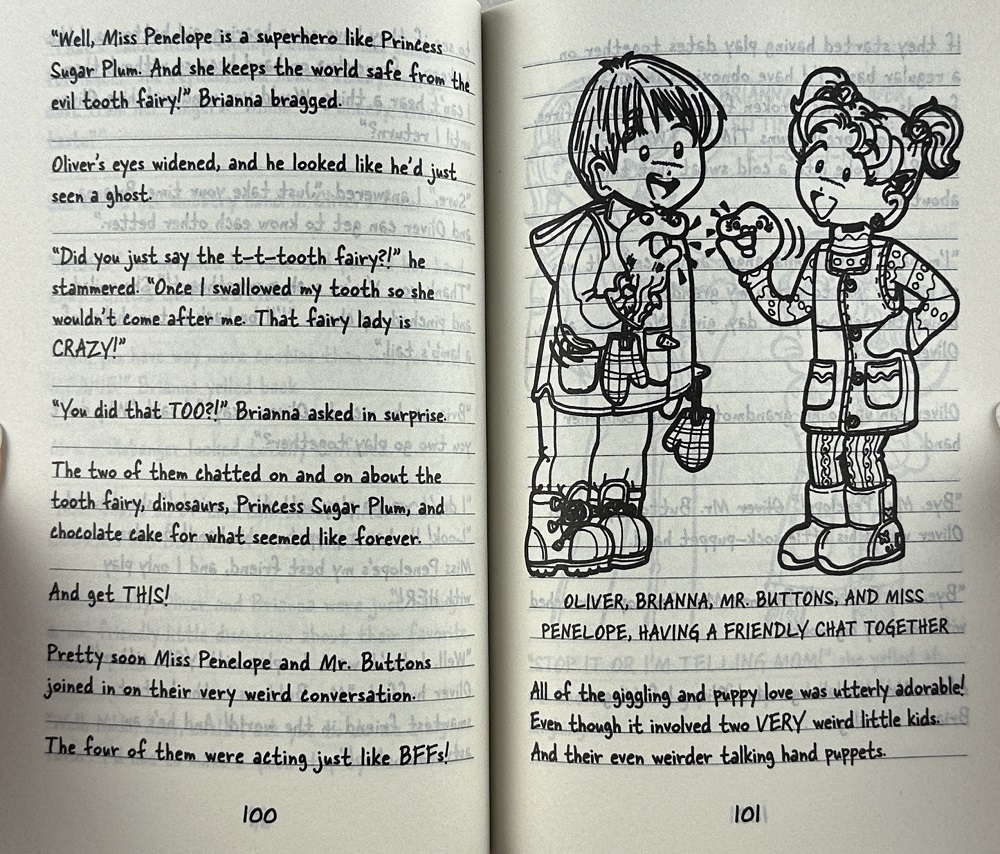 "Well, Miss Penelope is a superhero like Princess
Sugar Plum. And she keeps the world safe from the
evil tooth fairy!" Brianna bragged.
Oliver's eyes widened, and he looked like he'd just
seen a ghost.
"Did you just say the t-t-tooth fairy?!" he
stammered. "Once I swallowed my tooth so she
wouldn't come after me. That fairy lady is
CRAZY!"
"You did that TOO?!" Brianna asked in surprise.
The two of them chatted on and on about the
tooth fairy, dinosaurs, Princess Sugar Plum, and
chocolate cake for what seemed like forever.
And get THIS!
Pretty soon Miss Penelope and Mr. Buttons
joined in on their very weird conversation.
The four of them were acting just like BFFs!
100
OLIVER, BRIANNA, MR. BUTTONS, AND MISS
PENELOPE, HAVING A FRIENDLY CHAT TOGETHER
All of the giggling and puppy love was utterly adorable!
Even though it involved two VERY weird little kids.
And their even weirder talking hand puppets.
101